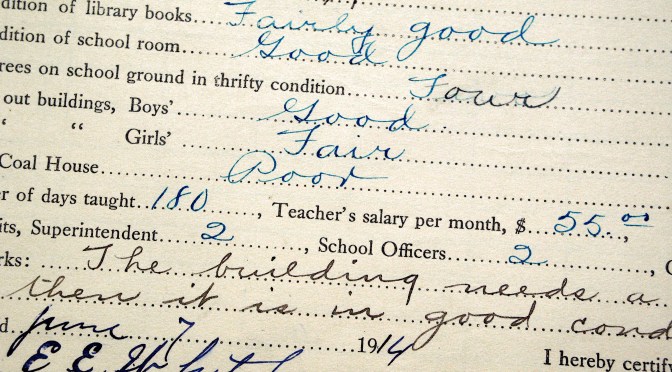 dition of library books.....Fairly good
dition of school room.....Good
rees on school ground in thrifty condition.....Four
out buildings, Boys'.....Good
" " Girls'.....Fair
Coal House.....Poor
r of days taught 180, Teacher's salary per month, $ 55.00,
its, Superintendent 2, School Officers 2,
rks: The building needs a
then it is in good cond
d June 7 1914
E E I hereby certify